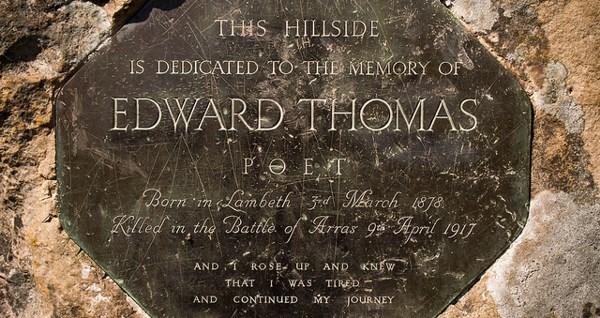 THIS HILLSIDE
IS DEDICATED TO THE MEMORY OF
EDWARD THOMAS
POET
Born in Lambeth 3rd March 1878
Killed in the Battle of Arras 9th April 1917
AND I ROSE UP AND KNEW
THAT I WAS TIRED
AND CONTINUED MY JOURNEY